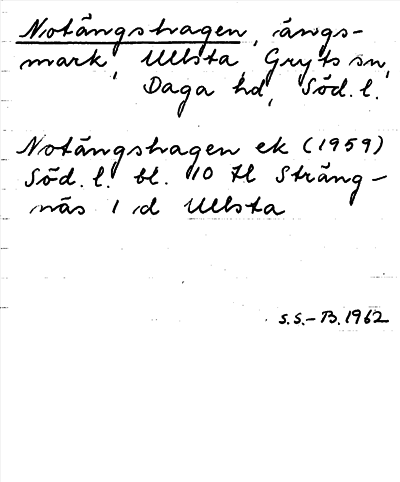 Notängshagen, ängs-
mark, Ullsta, Gryts sn,
Daga hd, Söd. l.
Notängshagen ek (1959)
Söd. l. bl. 10 H Sträng-
näs 1 d Ullsta
S.S.-B. 1962